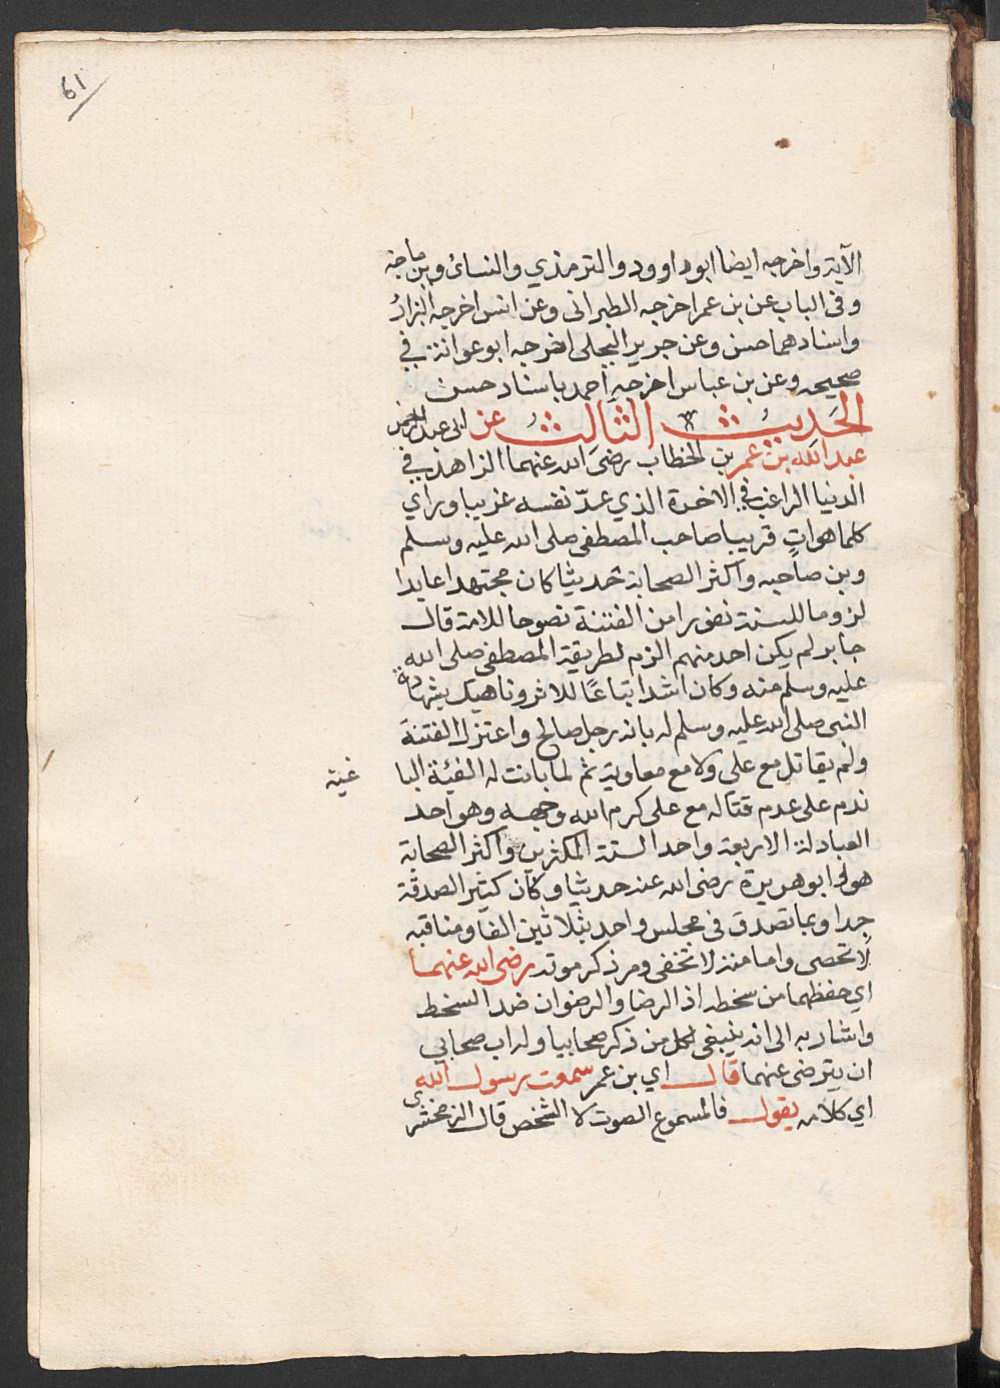 61
الآية واخرجه ايضا ابوداوود والترمذي والنسائ وبن ماجة
وفي الباب عن بن عمر اخرجه الطبراني وعن انس اخرجه البزار
واسنادهما حسن وعن جرير البجلي اخرجه ابو عوانة في
صحيحه وعن بن عباس اخرجه احمد باسناد حسن
الحَديث الثالث عن ابى عبد الرحمن
عبد الله بن عمر بن الخطاب رضي الله عنهما الزاهد في
الدنيا الراغب في الاخرة الذي عدّ نفسه غريبا وراي
كلما هو اتٍ قريبا صاحب المصطفى صلى الله عليه وسلم
وبن صاحبه واكثر الصحابة حديثا كان مجتهدا عابدا
لزوما للسنة نفورا من الفتنة نصوحا للامة قال
جابر لم يكن احد منهم الزم لطريقة المصطفى صلى الله
عليه وسلم منه وكان اشد اتباعًا للاثر وناهيك بشهادة
النبي صلى الله عليه وسلم له بانه رجل صالح واعتزل الفتنة
ولم يقاتل مع علي ولا مع معاوية ثم لما بانت له الفيئة البا
غية
ندم على عدم قتاله مع علي كرم الله وجهه وهو احد
العبادلة الاربعة واحد الستة المكثرين واكثر الصحابة
هو ابو هريرة رضي الله عنه حديثا وكان كثير الصدقة
جدا وبما تصدق في مجلس واحد بثلاثين الفا ومناقبه
لا تحصى وامامنه لا تخفى ومر ذكر موته رضي الله عنهما
اي حفظهما من سخطه اذ الرضا والرضوان ضد السخط
واشار به الى انه ينبغي لكل من ذكر صحابيا وله اب صحابي
ان يترضى عنهما قال اي بن عمر سمعت رسول الله
اي كلامه يقول فالمسموع الصوت لا الشخص قال الزمخشري